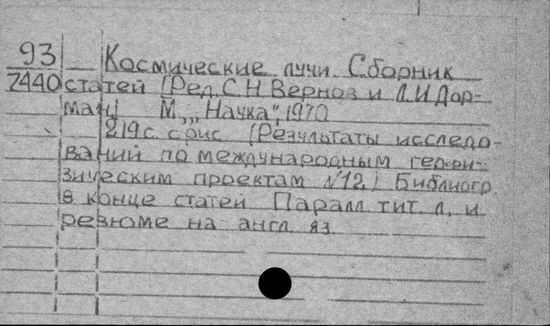 93 Космические лучи. Сборник
7440 статей (Ред. С.Н. Вернов и Л.И. Дор-
ман) М., „Наука", 1970
219 с. с рис. (Результаты исследо-
ваний по международным геофи-
зическим проектам №12) Библиогр.
в конце статей Паралл. тит. л. и
резюме на англ. яз.